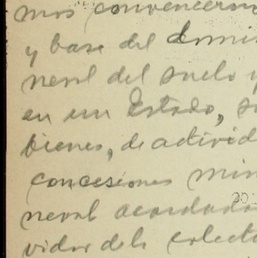 mos convencerno
y base del domi
neral del suelo y
en un Estado, s
bienes, de activid
concesiones min
neral acordada
vidor de la colect